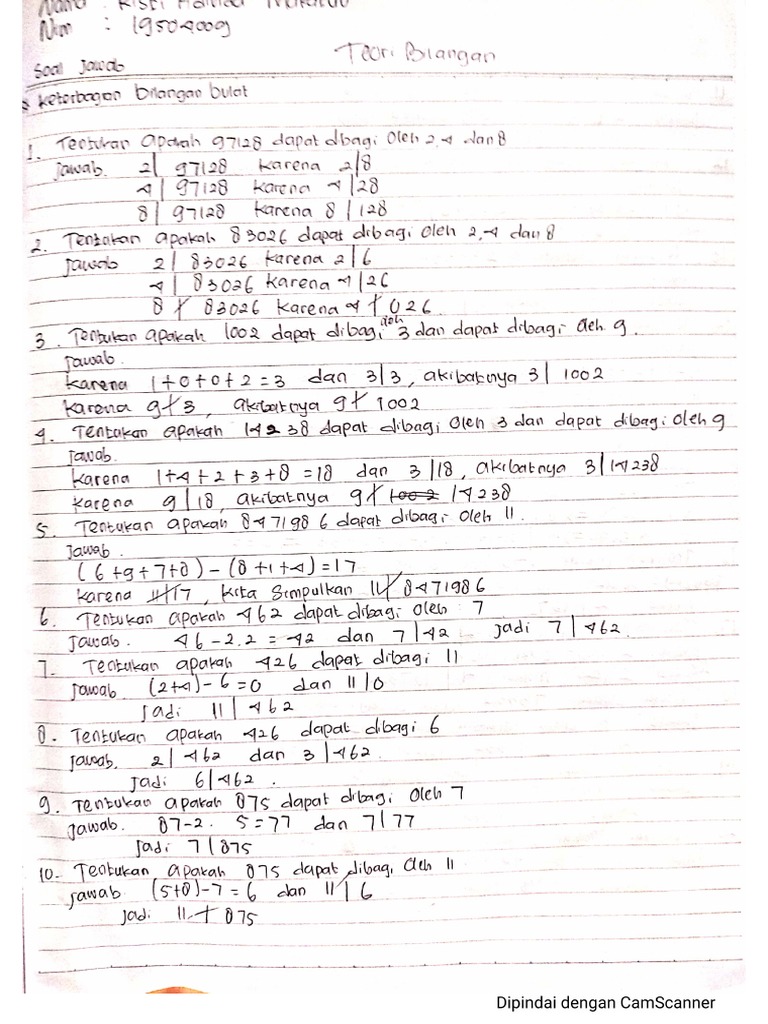 Nim : 19504009
Teori Bilangan
Soal Jawab
Keterbagian bilangan bulat
1. Tentukan apakah 97128 dapat dbagi oleh 2,4 dan 8
Jawab. 2| 97128 karena 2|8
4| 97128 karena 4|28
8| 97128 karena 8|128
2. Tentukan apakah 83026 dapat dibagi oleh 2,4 dan 8
Jawab 2| 83026 karena 2|6
4| 83026 karena 4|26
8∤ 83026 karena 4∤026.
3. Tentukan apakah 1002 dapat dibagi oleh 3 dan dapat dibagi oleh 9.
Jawab.
Karena 1+0+0+2=3 dan 3|3, akibatnya 3|1002
Karena 9∤3, akibatnya 9∤1002
4. Tentukan apakah 14238 dapat dibagi oleh 3 dan dapat dibagi oleh 9
Jawab.
Karena 1+4+2+3+8=18 dan 3|18, akibatnya 3|14238
Karena 9|18, akibatnya 9∤ 14238
5. Tentukan apakah 8471986 dapat dibagi oleh 11.
Jawab.
(6+9+7+8)-(8+1+4)=17
Karena 11∤17, kita simpulkan 11∤8471986
6. Tentukan apakah 462 dapat dibagi oleh 7
Jawab. 46-2.2=42 dan 7|42 Jadi 7|462.
7. Tentukan apakah 426 dapat dibagi 11
Jawab (2+4)-6=0 dan 11|0
Jadi 11|462
8. Tentukan apakah 426 dapat dibagi 6
Jawab. 2|462 dan 3|462.
Jadi 6|462.
9. Tentukan apakah 875 dapat dibagi oleh 7
Jawab. 87-2. 5=77 dan 7|77
Jadi 7|875
10. Tentukan apakah 875 dapat dibagi oleh 11
Jawab (5+8)-7=6 dan 11∤6
Jadi 11∤875
Dipindai dengan CamScanner